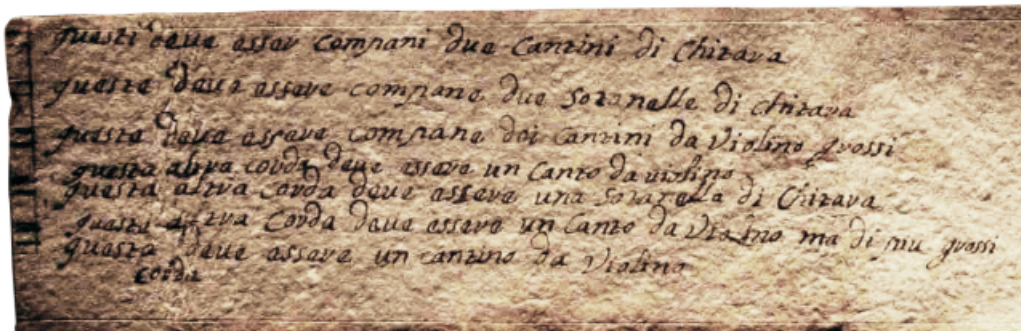 questi deue esser compani due Cantini di Chitara
queste deue essere compane due Sotanelle di chitara
questa deue essere compane doi Cantini da Violino grossi
questa altra corda deue essere un Canto da violino
questa altra Corda deue essere una Sotanella di Chitara
questa altra Corda deue essere un Canto da Violino ma di piu grossi
questa deue essere un cantino da Violino
corda